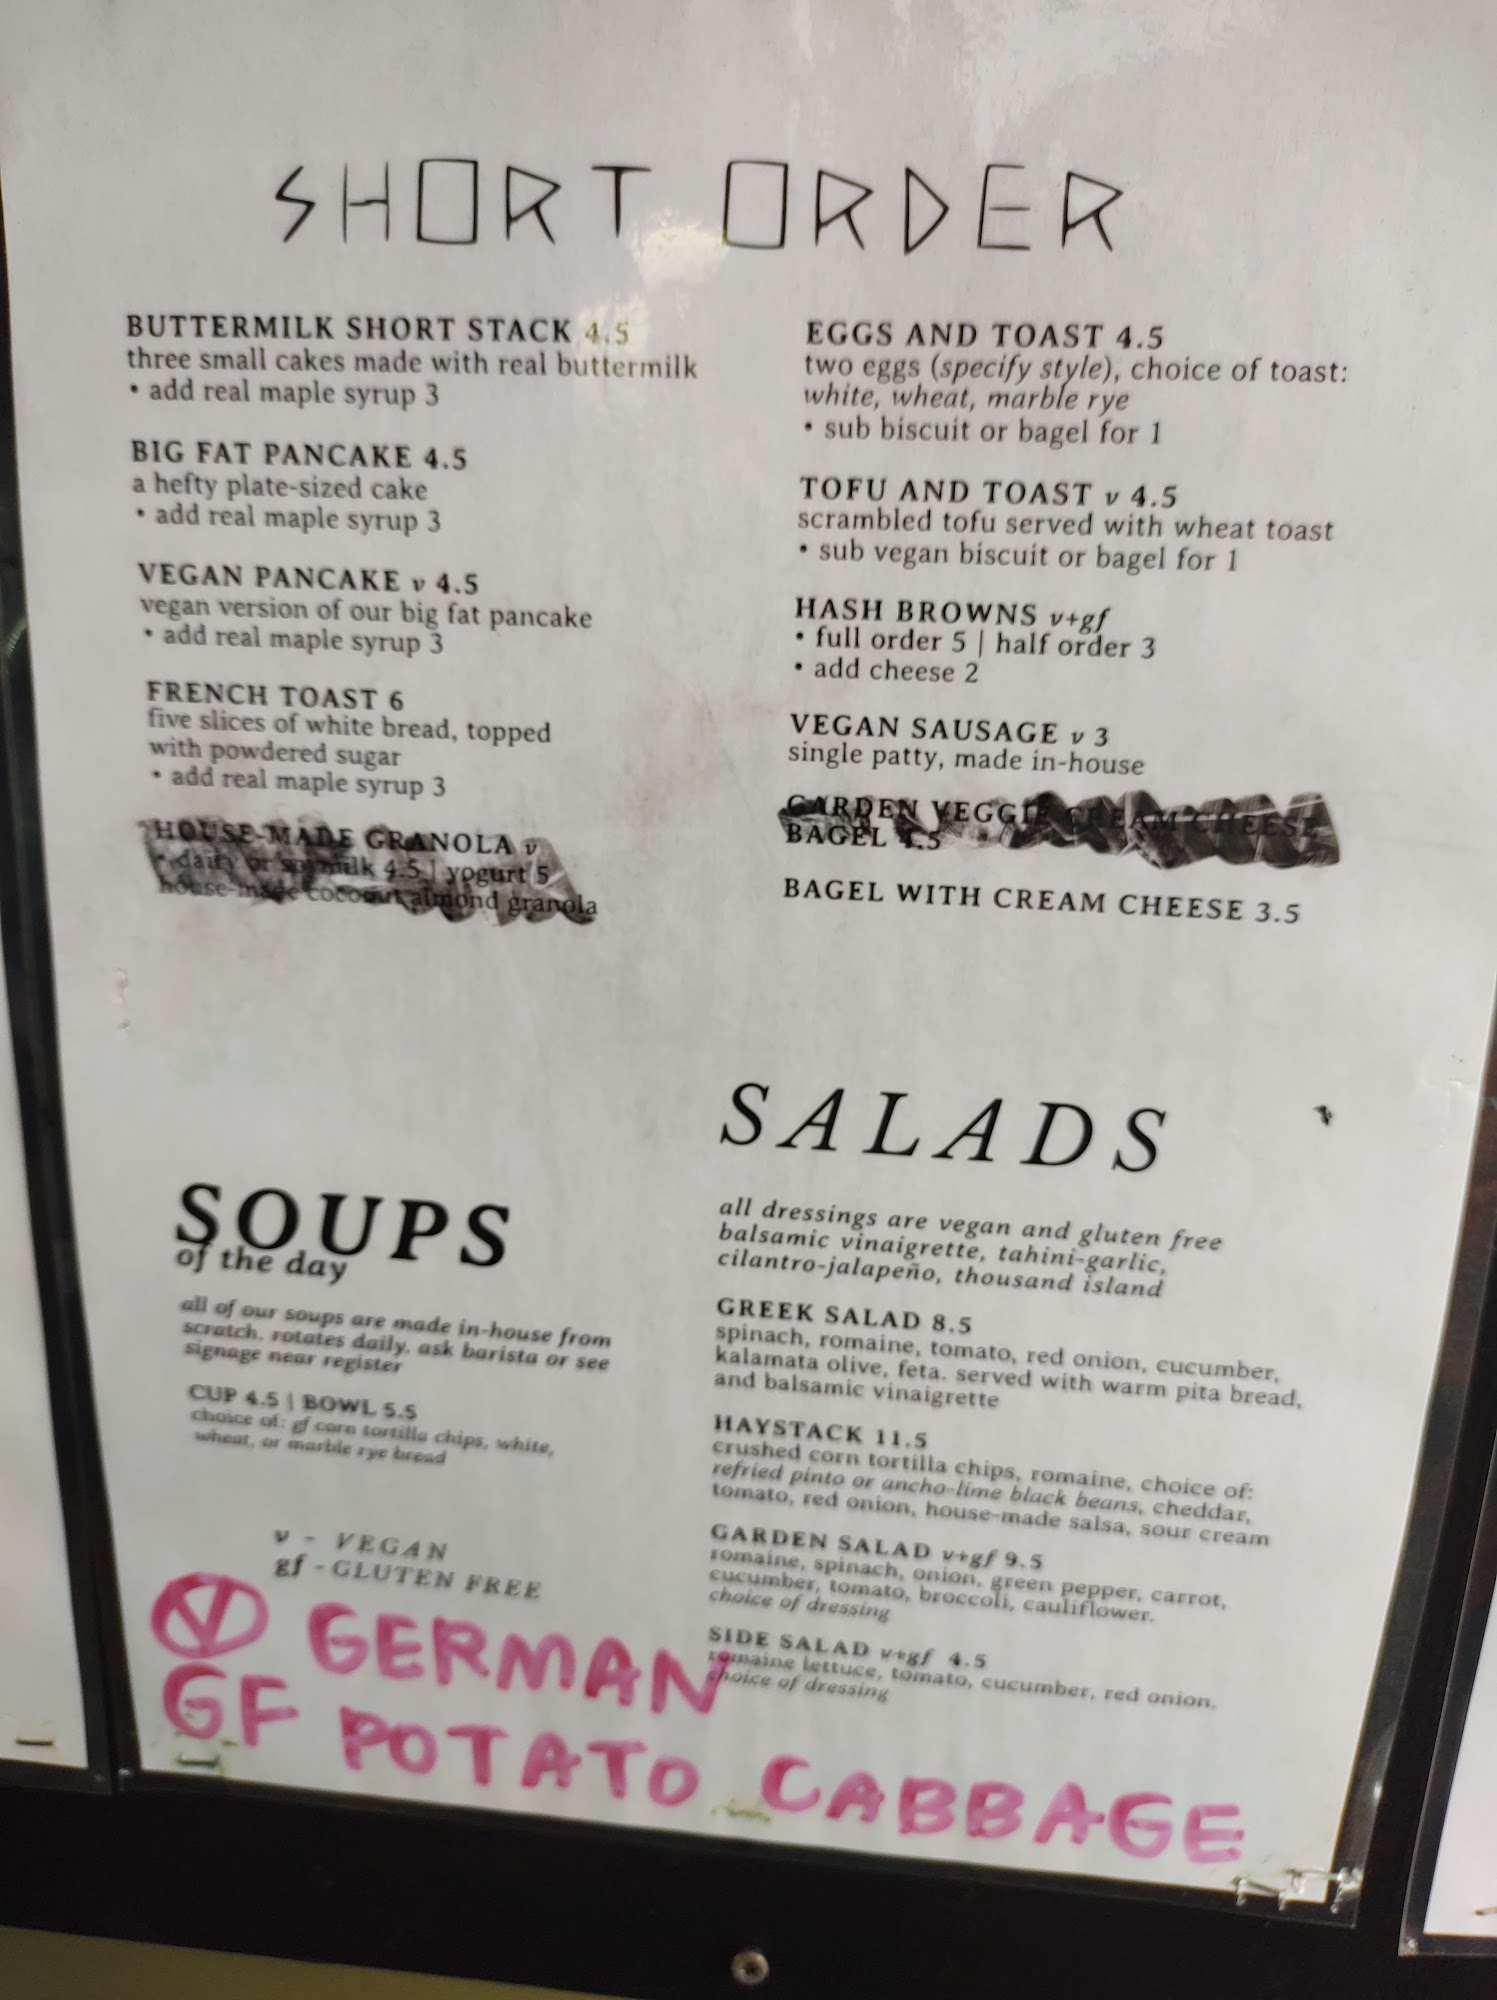 SHORT ORDER
BUTTERMILK SHORT STACK 4.5
three small cakes made with real buttermilk
• add real maple syrup 3
BIG FAT PANCAKE 4.5
a hefty plate-sized cake
• add real maple syrup 3
VEGAN PANCAKE v 4.5
vegan version of our big fat pancake
• add real maple syrup 3
FRENCH TOAST 6
five slices of white bread, topped
with powdered sugar
• add real maple syrup 3
HOUSE-MADE GRANOLA v
• dairy or soymilk 4.5 | yogurt 5
house-made coconut almond granola
EGGS AND TOAST 4.5
two eggs (specify style), choice of toast:
white, wheat, marble rye
• sub biscuit or bagel for 1
TOFU AND TOAST v 4.5
scrambled tofu served with wheat toast
• sub vegan biscuit or bagel for 1
HASH BROWNS v+gf
• full order 5 | half order 3
• add cheese 2
VEGAN SAUSAGE v 3
single patty, made in-house
GARDEN VEGGIE CREAM CHEESE
BAGEL 4.5
BAGEL WITH CREAM CHEESE 3.5
SOUPS
of the day
all of our soups are made in-house from
scratch. rotates daily. ask barista or see
signage near register
CUP 4.5 | BOWL 5.5
choice of: gf corn tortilla chips, white,
wheat, or marble rye bread
v - VEGAN
gf - GLUTEN FREE
SALADS
all dressings are vegan and gluten free
balsamic vinaigrette, tahini-garlic,
cilantro-jalapeño, thousand island
GREEK SALAD 8.5
spinach, romaine, tomato, red onion, cucumber,
kalamata olive, feta. served with warm pita bread,
and balsamic vinaigrette
HAYSTACK 11.5
crushed corn tortilla chips, romaine, choice of:
refried pinto or ancho-lime black beans, cheddar,
tomato, red onion, house-made salsa, sour cream
GARDEN SALAD v+gf 9.5
romaine, spinach, onion, green pepper, carrot,
cucumber, tomato, broccoli, cauliflower.
choice of dressing
SIDE SALAD v+gf 4.5
romaine lettuce, tomato, cucumber, red onion.
choice of dressing
V GERMAN
GF POTATO CABBAGE